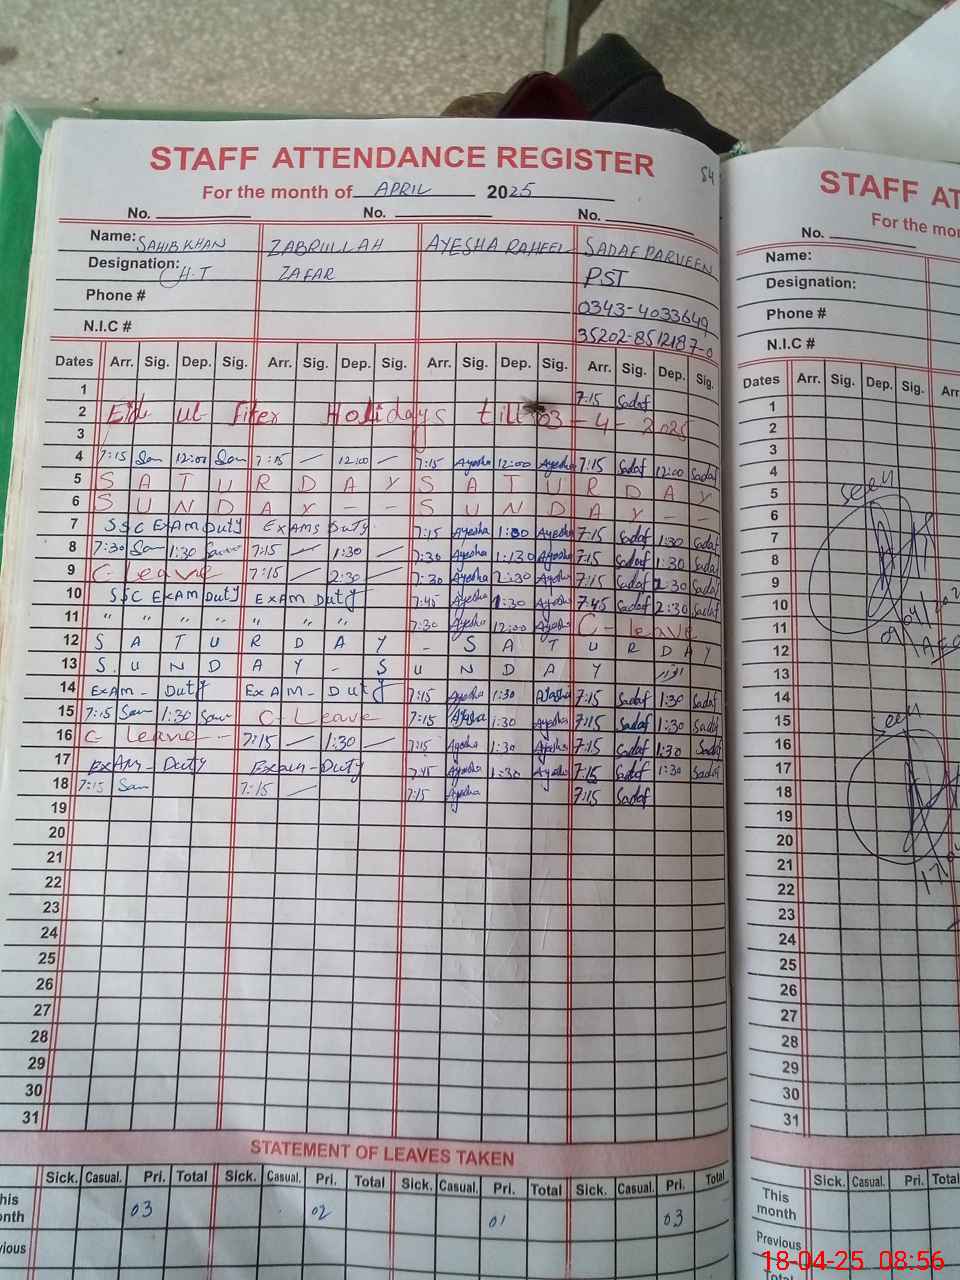 STAFF ATTENDANCE REGISTER
54
For the month of APRIL 2025
No. No. No.
Name: SAHIB KHAN ZABRULLAH AYESHA RAHEEL SADAF PARVEEN
Designation: H.T ZAFAR PST
Phone # 0343-4033649
N.I.C # 35202-8512187-0
Dates Arr. Sig. Dep. Sig. Arr. Sig. Dep. Sig. Arr. Sig. Dep. Sig. Arr. Sig. Dep. Sig.
1 7:15 Sadaf
2 Eid ul Fiter Holidays till 03-4-2025
3
4 7:15 12:00 7:15 — 12:00 — 7:15 Ayesha 12:00 Ayesha 7:15 Sadaf 12:00 Sadaf
5 S A T U R D A Y S A T U R D A Y
6 S U N D A Y - - S U N D A Y - -
7 SSC EXAM Duty EXAMS Duty 7:15 Ayesha 1:30 Ayesha 7:15 Sadaf 1:30 Sadaf
8 7:30 1:30 7:15 — 1:30 — 7:30 Ayesha 1:130 Ayesha 7:15 Sadaf 1:30 Sadaf
9 C-Leave 7:15 — 2:30 — 7:30 Ayesha 2:30 Ayesha 7:15 Sadaf 2:30 Sadaf
10 SSC EXAM Duty EXAM Duty 7:45 Ayesha 1:30 Ayesha 7:45 Sadaf 2:30 Sadaf
11 " " " " " " " 7:30 Ayesha 12:00 Ayesha C-leave
12 S A T U R D A Y - S A T U R D A Y
13 S U N D A Y - S U N D A Y
14 EXAM - Duty EXAM - Duty 7:15 Ayesha 1:30 Ayesha 7:15 Sadaf 1:30 Sadaf
15 7:15 1:30 C-Leave 7:15 Ayesha 1:30 Ayesha 7:15 Sadaf 1:30 Sadaf
16 C leave -- 7:15 — 1:30 — 7:15 Ayesha 1:30 Ayesha 7:15 Sadaf 1:30 Sadaf
17 EXAM - Duty Exam - Duty 7:45 Ayesha 1:30 Ayesha 7:15 Sadaf 1:30 Sadaf
18 7:15 7:15 — 7:15 Ayesha 7:15 Sadaf
19
20
21
22
23
24
25
26
27
28
29
30
31
STATEMENT OF LEAVES TAKEN
Sick. Casual. Pri. Total Sick. Casual. Pri. Total Sick. Casual. Pri. Total Sick. Casual. Pri. Total
his
onth 03 02 01 03
vious
STAFF AT
For the mon
No.
Name:
Designation:
Phone #
N.I.C #
Dates Arr. Sig. Dep. Sig. Arr
1
2
3
4
5 seen
6
7
8
9
10
11
12
13
14
15 seen
16
17
18
19
20
21
22
23
24
25
26
27
28
29
30
31
Sick. Casual. Pri. Total
This
month
Previous
Total
18-04-25 08:56